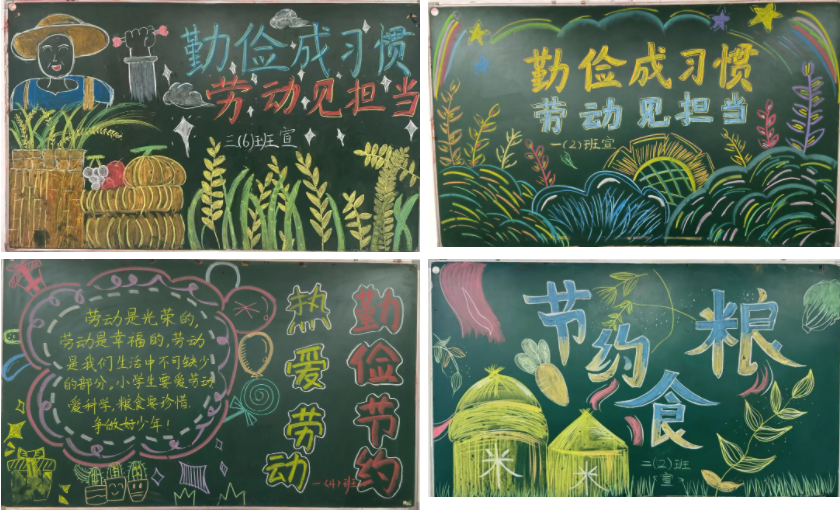 勤俭成习惯
劳动见担当
三(6)班宣
勤俭成习惯
劳动见担当
一(2)班宣
劳动是光荣的,
劳动是幸福的,劳动
是我们生活中不可缺少
的部分,小学生要爱劳动
爱科学,粮食要珍惜.
争做好少年!
勤俭节约
热爱劳动
一(4)班
节约粮食
米
米
二(2)班
宣